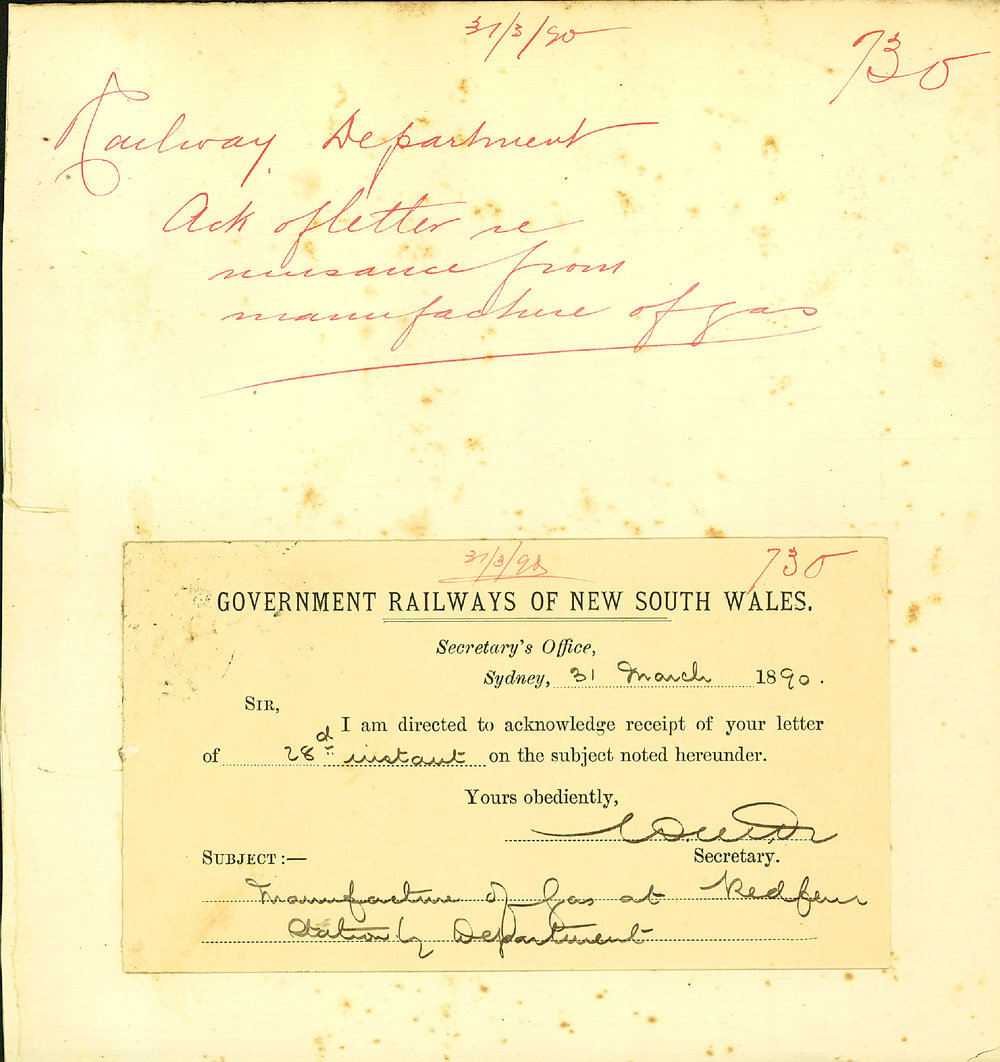 31/3/90
730
Railway Department
Ack of letter re
nuisance from
manufacture of gas
31/3/90
730
GOVERNMENT RAILWAYS OF NEW SOUTH WALES.
Secretary's Office,
Sydney, 31 March 1890.
SIR,
I am directed to acknowledge receipt of your letter
of 28d instant on the subject noted hereunder.
Yours obediently,
Secretary.
SUBJECT:—
Manufacture of Gas at Redfern
Station by Department